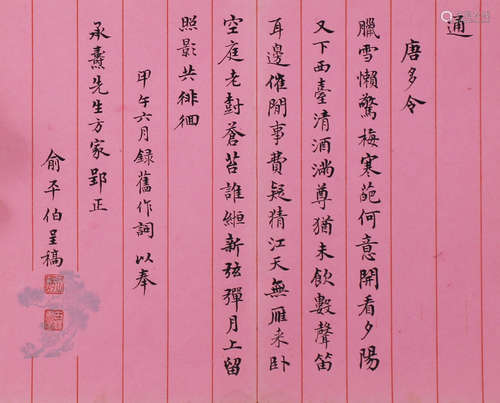 通
唐多令
臘雪懶驚梅寒葩何意開看夕陽
又下西臺清酒滿尊猶未飲數聲笛
耳邊催閒事費疑猜江天無雁来卧
空庭老封蒼苔誰絙新弦彈月上留
照影共徘徊
甲午六月錄舊作詞以奉
承燾先生方家郢正
俞平伯呈稿